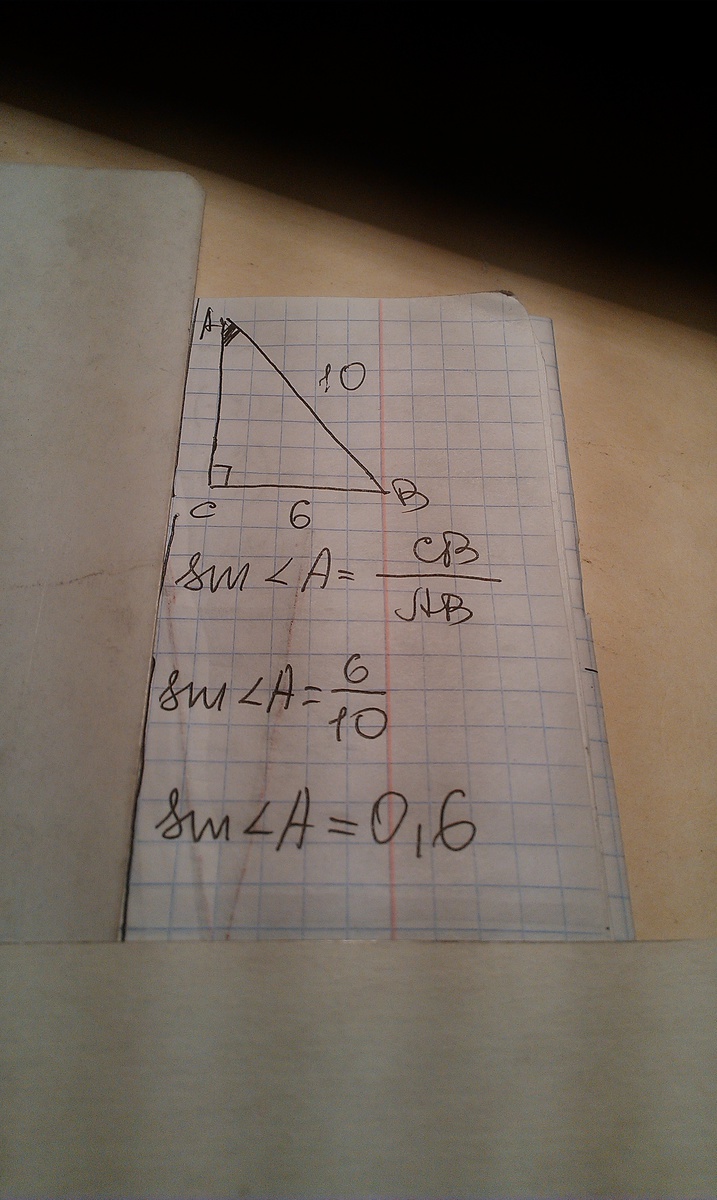 A
10
C
6
B
sin ∠A = CB/AB
sin ∠A = 6/10
sin ∠A = 0,6